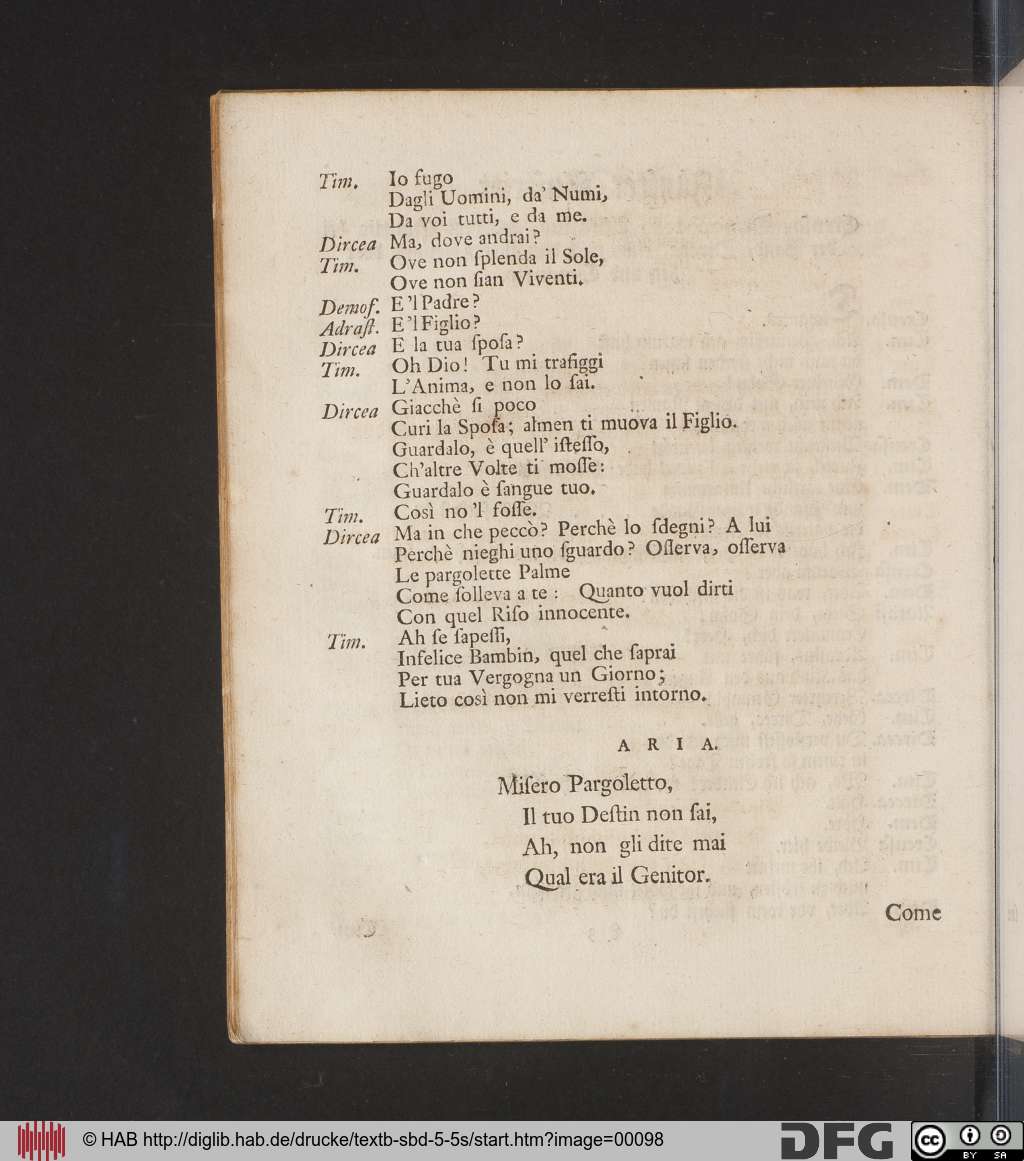 Tim. Io fugo
Dagli Uomini, da' Numi,
Da voi tutti, e da me.
Dircea Ma, dove andrai?
Tim. Ove non ſplenda il Sole,
Ove non ſian Viventi.
Demoſ. E'l Padre?
Adraſt. E'l Figlio?
Dircea E la tua ſpoſa?
Tim. Oh Dio! Tu mi trafiggi
L'Anima, e non lo ſai.
Dircea Giacchè ſi poco
Curi la Spoſa; almen ti muova il Figlio.
Guardalo, è quell' iſteſſo,
Ch'altre Volte ti moſſe:
Guardalo è ſangue tuo.
Tim. Così no 'l foſſe.
Dircea Ma in che peccò? Perchè lo ſdegni? A lui
Perchè nieghi uno ſguardo? Oſſerva, oſſerva
Le pargolette Palme
Come ſolleva a te: Quanto vuol dirti
Con quel Riſo innocente.
Tim. Ah ſe ſapeſſi,
Infelice Bambin, quel che ſaprai
Per tua Vergogna un Giorno;
Lieto così non mi verreſti intorno.
ARIA.
Miſero Pargoletto,
Il tuo Deſtin non ſai,
Ah, non gli dite mai
Qual era il Genitor.
Come
© HAB http://diglib.hab.de/drucke/textb-sbd-5-5s/start.htm?image=00098
DFG
cc BY SA